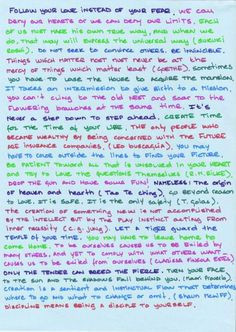 FOLLOW YOUR LOVE INSTEAD OF YOUR FEAR. WE CAN
DENY OUR HEARTS OR WE CAN DENY OUR LIMITS. EACH
OF US MUST HAVE HIS OWN TRUE WAY, AND WHEN WE
DO, THAT WAY WILL EXPRESS THE UNIVERSAL WAY (SUZUKI
ROSHI). DO NOT SEEK TO CONVINCE OTHERS. BE INVINCIBLE.
THINGS WHICH MATTER MOST MUST NEVER BE AT THE
MERCY OF THINGS WHICH MATTER LEAST (GOETHE). SOMETIMES
YOU HAVE TO LOSE THE HOUSE TO ACQUIRE THE MANSION.
IT TAKES AN INTERMISSION TO GIVE BIRTH TO A MISSION.
YOU CAN'T CLING TO THE OLD NEST AND SOAR TO THE
FLOWERING BRANCHES AT THE SAME TIME. IT'S
NEVER A STEP DOWN TO STEP AHEAD. CREATE TIME
OR THE TIME OF YOUR LIFE. THE ONLY PEOPLE WHO
BECOME WEALTHY BY BEING CONCERNED WITH THE FUTURE
ARE INSURANCE COMPANIES. (LEO BUSCAGLIA). YOU MAY
HAVE TO COLOR OUTSIDE THE LINES TO FIND YOUR PICTURE.
BE PATIENT TOWARD ALL THAT IS UNSOLVED IN YOUR HEART
AND TRY TO LOVE THE QUESTIONS THEMSELVES (R.M. RILKE).
DROP THE GUN AND HAVE SOME FUN! NAMELESS: THE ORIGIN
OF HEAVEN AND EARTH (TAO TE CHING). GO BEYOND REASON
TO LOVE. IT IS SAFE. IT IS THE ONLY SAFETY (T. GOLAS).
THE CREATION OF SOMETHING NEW IS NOT ACCOMPLISHED
BY THE INTELLECT BUT BY THE PLAY INSTINCT ACTING FROM
INNER NECESSITY (C.G. JUNG). LET A TIGER GUARD THE
TENT OF YOUR TIME. YOU MAY NEED TO LEAVE HOME, TO
COME HOME. TO BE OURSELVES CAUSES US TO BE EXILED BY
MANY OTHERS, AND YET TO COMPLY WITH WHAT OTHERS WANT
CAUSES US TO BE EXILED FROM OURSELVES (CLARISSA PINKOLA ESTES).
ONLY THE TENDER CAN BEFRIEND THE FIERCE. TURN YOUR FACE
TO THE SUN AND THE SHADOWS FALL BEHIND YOU. (MAORI PROVERB).
CREATION IS A SENTIENT AND INSTINCTUAL FLOW THAT DETERMINES
WHERE TO GO AND WHAT TO CHANGE OR OMIT. (SHAUN McNIFF)
DISCIPLINE MEANS BEING A DISCIPLE TO YOURSELF.